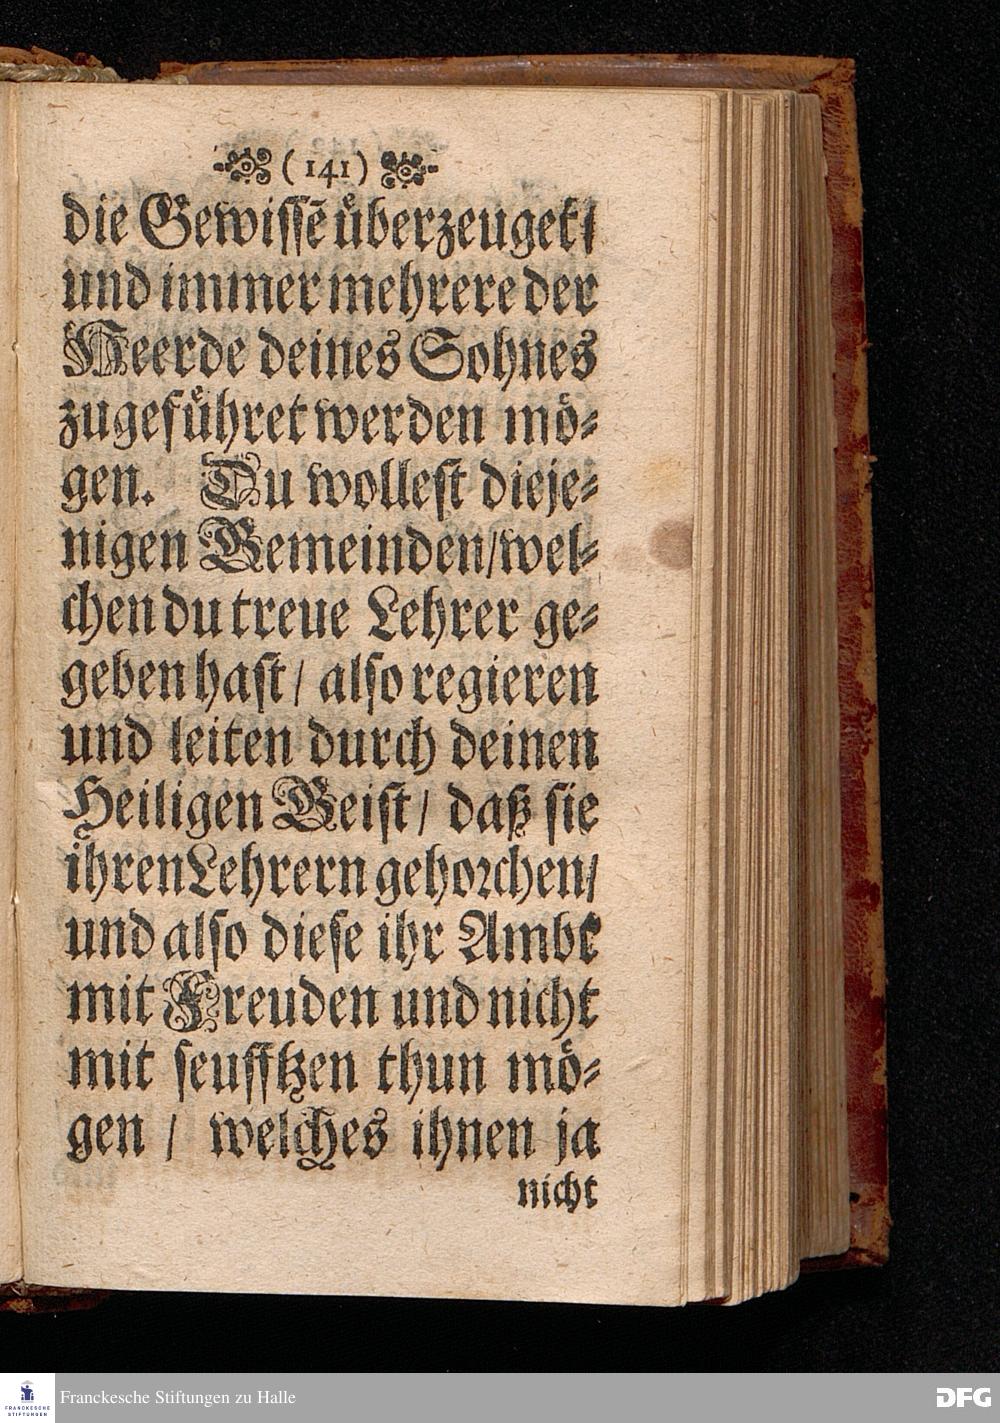 ( 141 )
die Gewissē uͤberzeuget/
und immer mehrere der
Heerde deines Sohnes
zugefuͤhret werden moͤ-
gen. Du wollest dieje-
nigen Gemeinden/wel-
chen du treue Lehrer ge-
geben hast/ also regieren
und leiten durch deinen
Heiligen Geist/ daß sie
ihren Lehrern gehorchen/
und also diese ihr Ambt
mit Freuden und nicht
mit seufftzen thun moͤ-
gen / welches ihnen ja
nicht
FRANCKESCHE
STIFTUNGEN
Franckesche Stiftungen zu Halle
DFG